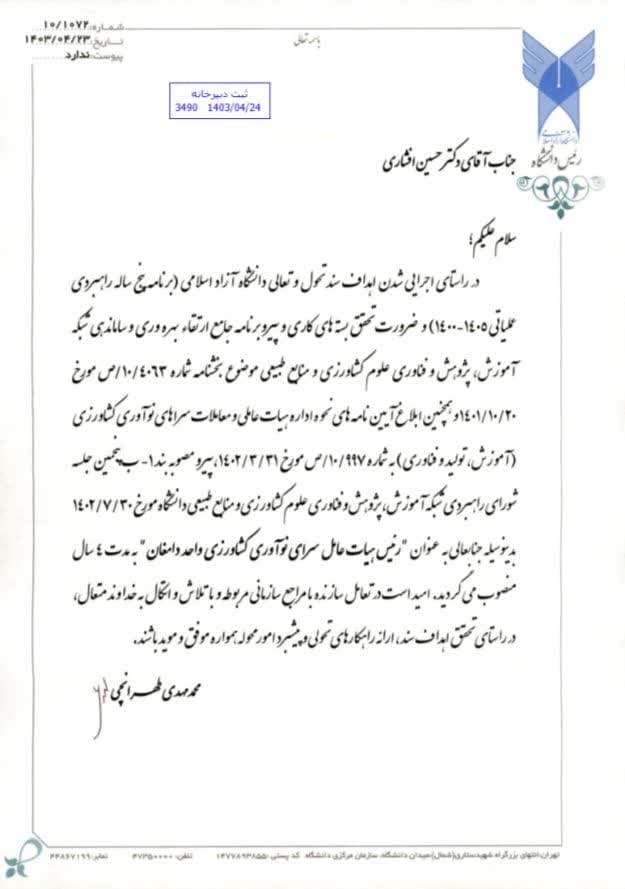 باسمه تعالی
شماره: ۱۰/۱۰۷۲
تاریخ: ۱۴۰۳/۰۴/۲۳
پیوست: ندارد
ثبت دبیرخانه
3490 1403/04/24
رئیس دانشگاه
جناب آقای دکتر حسین افشاری
سلام علیکم؛
در راستای اجرایی شدن اهداف سند تحول و تعالی دانشگاه آزاد اسلامی (برنامه پنج ساله راهبردی
عملیاتی ۱۴۰۵-۱۴۰۰) و ضرورت تحقق بسته های کاری و پیرو برنامه جامع ارتقاء بهره وری و ساماندهی شبکه
آموزش، پژوهش و فناوری علوم کشاورزی و منابع طبیعی موضوع بخشنامه شماره ۱۰/۴۰۶۳/ص مورخ
۱۴۰۱/۱۰/۲۰ و همچنین ابلاغ آیین نامه های نحوه اداره هیات عاملی و معاملات سراهای نوآوری کشاورزی
(آموزش، تولید و فناوری) به شماره ۱۰/۹۹۷/ص مورخ ۱۴۰۲/۳/۳۱، پیرو مصوبه بند ۱- ب پنجمین جلسه
شورای راهبردی شبکه آموزش، پژوهش و فناوری علوم کشاورزی و منابع طبیعی دانشگاه مورخ ۱۴۰۲/۷/۳۰
بدینوسیله جنابعالی به عنوان "رئیس هیات عامل سرای نوآوری کشاورزی واحد دامغان" به مدت ۴ سال
منصوب می گردید. امید است در تعامل سازنده با مراجع سازمانی مربوطه و با تلاش و اتکال به خداوند متعال،
در راستای تحقق اهداف سند، ارائه راهکارهای تحولی و پیشبرد امور محوله همواره موفق و موید باشند.
محمد مهدی طهرانچی
تهران: انتهای بزرگراه شهید ستاری (شمال)، میدان دانشگاه، سازمان مرکزی دانشگاه. کد پستی: ۱۴۷۷۸۹۳۸۵۵ تلفن: ۴۷۳۵۰۰۰۰ نمابر: ۴۴۸۶۷۱۹۹